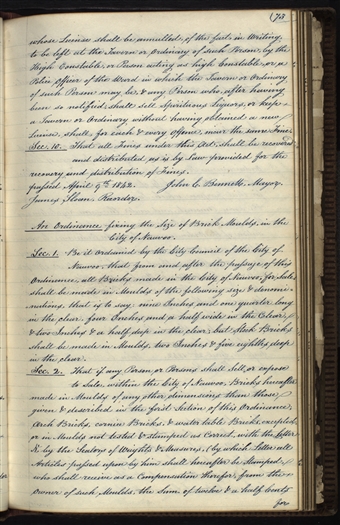 (73
whose License shall be annulled, of the facts in Writing,
to be left at the Tavern or ordinary of such Person, by the
High Constable, or Person acting as high Constable, or a
Police officer of the Ward in which the Tavern or Ordinary
of such Person may be, & any Person who, after having
been so notified, shall sell Spirituous Liquors, or keep
a Tavern or Ordinary without having obtained a new
License, shall, for each & every offence, incur the same Fine.
Sec. 10. That all Fines under this Act, shall be recovered
and distributed as is by Law provided for the
recovery and distribution of Fines.
passed April 9th 1842. John C. Bennett, Mayor.
James Sloan. Recorder.
An Ordinance fixing the Size of Brick Moulds, in the
City of Nauvoo.
Sec. 1. Be it ordained by the City Council of the City of
Nauvoo, that from and after the passage of this
Ordinance, all Bricks made in the City of Nauvoo, for Sale,
shall be made in Moulds of the following size & denomi-
nations, that is to say nine Inches and one quarter long
in the clear, four Inches and a half wide in the Clear,
& two Inches & a half deep in the clear, but Stock Bricks
shall be made in Moulds, two Inches & five eighths deep
in the clear.
Sec. 2. That if any Person or Persons shall Sell, or expose
to Sale, within the City of Nauvoo, Bricks hereafter
made in Moulds of any other dimensions than those
given & described in the first Section of this Ordinance,
Arch Bricks, cornice Bricks, & water table Bricks, excepted,
or in Moulds not tested & stamped as Correct, with the Letter
N. by the Sealer of Weights & Measures, (by which Letter all
Articles passed upon by him shall hereafter be Stamped,
who shall receive as a Compensation therefor, from the
Owner of such Moulds, the Sum of twelve & a half Cents
for